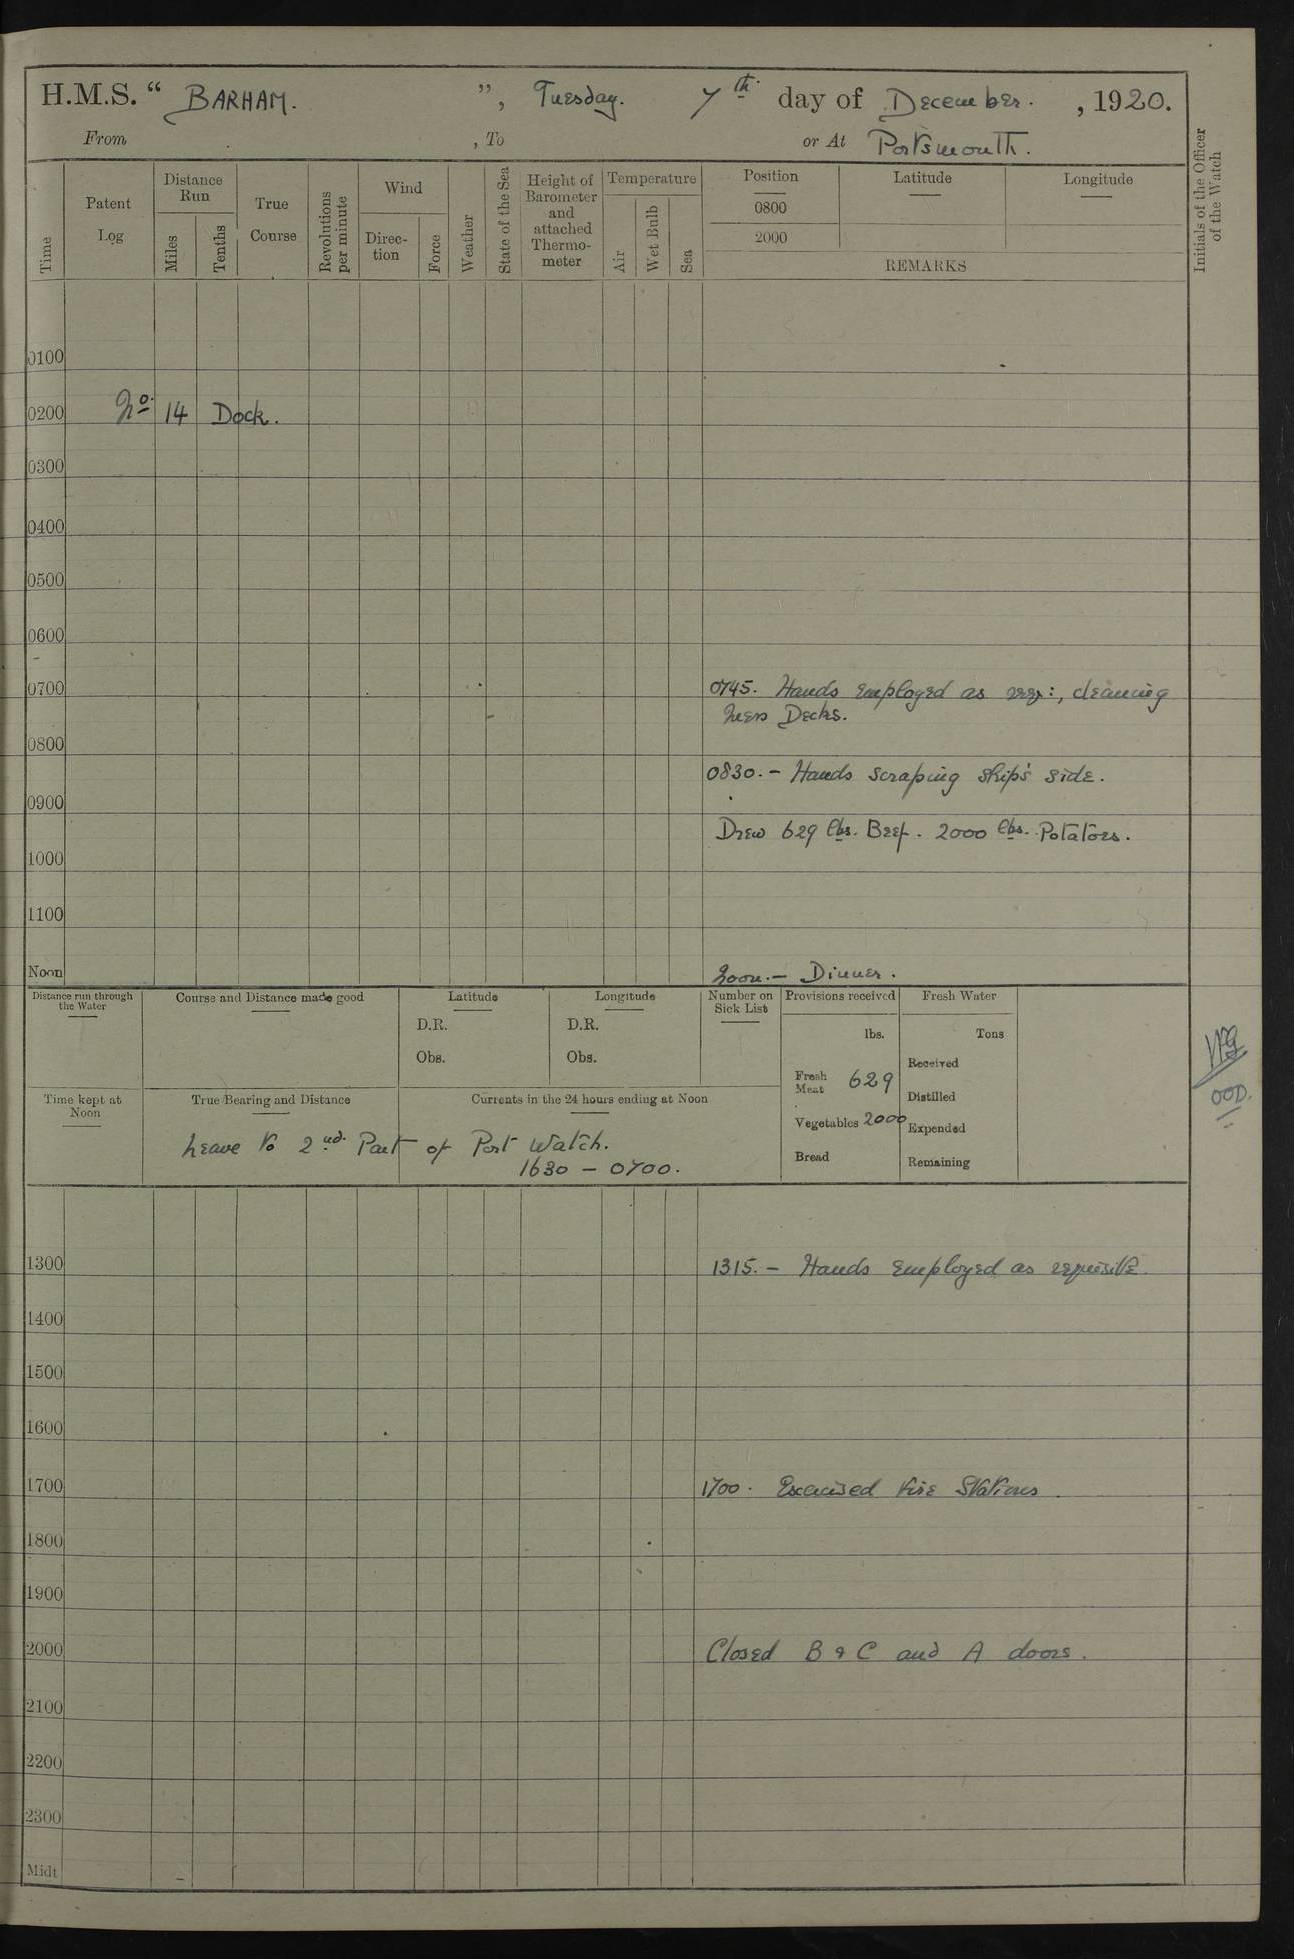 H.M.S. “ BARHAM. ”, Tuesday. 7th day of December. , 1920.
From , To or At Portsmouth.
Time
Patent Log
Distance Run
Miles
Tenths
True Course
Revolutions per minute
Wind
Direc-tion
Force
Weather
State of the Sea
Height of Barometer and attached Thermo-meter
Temperature
Air
Wet Bulb
Sea
Position Latitude Longitude
0800
2000
REMARKS
Initials of the Officer of the Watch
0100
0200 No. 14 Dock.
0300
0400
0500
0600
0700 0745. Hands employed as req:, cleaning
Mess Decks.
0800
0830. - Hands scraping ship's side.
0900
Drew 629 lbs. Beef. 2000 lbs. Potatoes.
1000
1100
Noon Noon. - Dinner.
Distance run through the Water
Course and Distance made good
Latitude
D.R.
Obs.
Longitude
D.R.
Obs.
Number on Sick List
Provisions received
lbs.
Fresh Meat 629
Vegetables 2000
Bread
Fresh Water
Tons
Received
Distilled
Expended
Remaining
OOD.
Time kept at Noon
True Bearing and Distance
Currents in the 24 hours ending at Noon
Leave to 2nd. Part of Port Watch.
1630 - 0700.
1300 1315. - Hands employed as requisite
1400
1500
1600
1700 1700. Exercised Fire Stations.
1800
1900
2000 Closed B & C and A doors.
2100
2200
2300
Midt